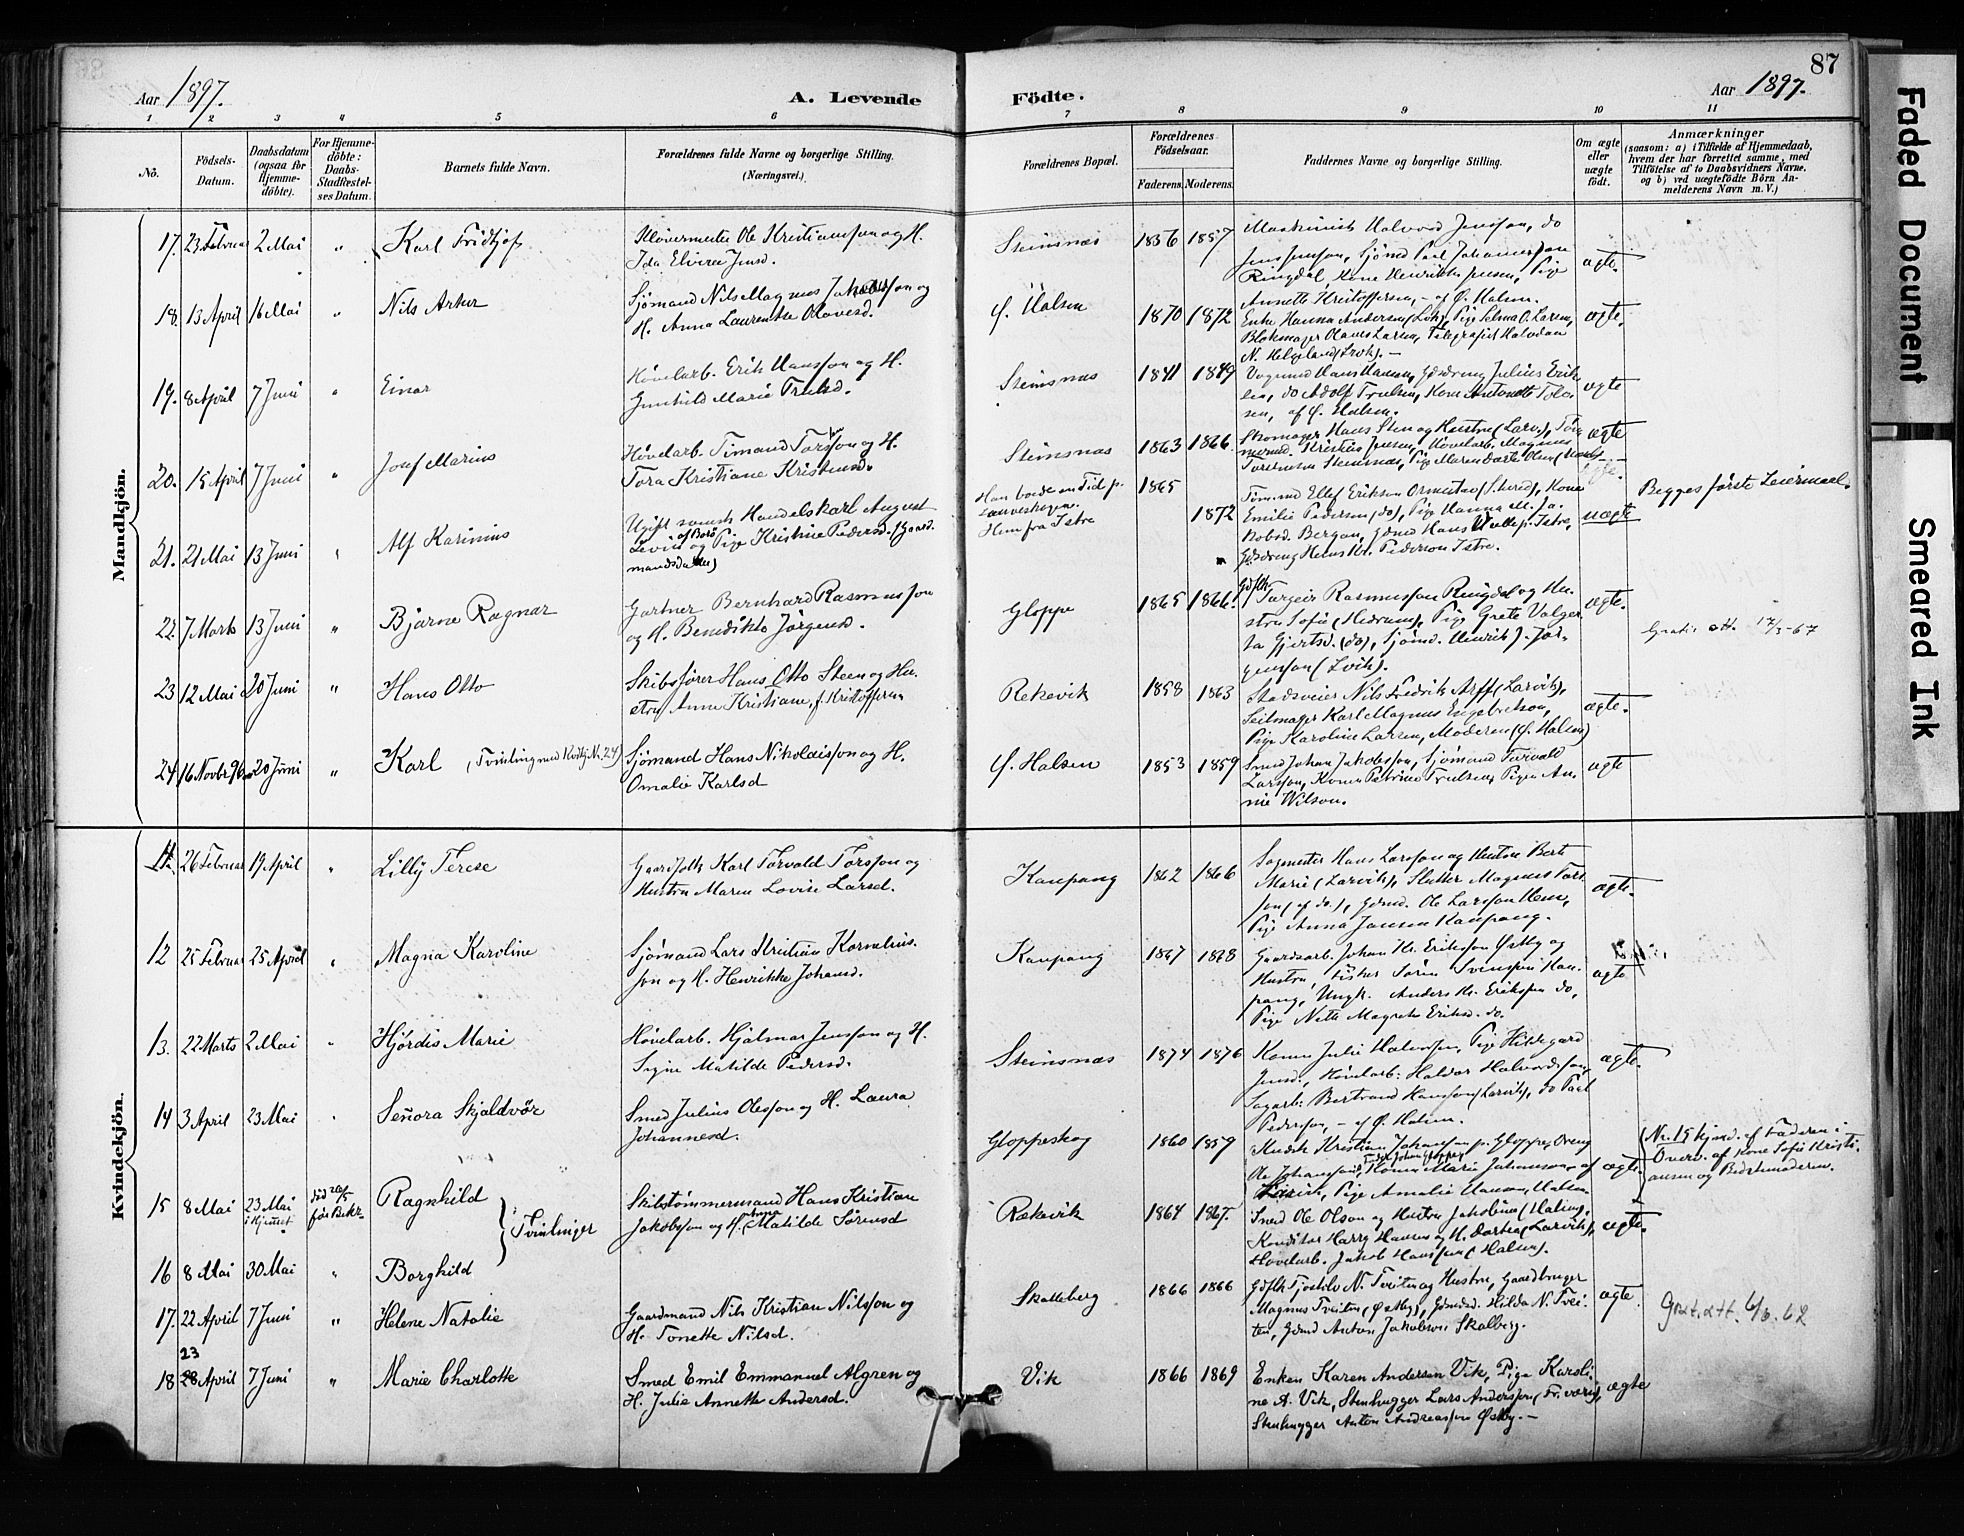 87
Aar 1897.
A. Levende Födte.
Aar 1897.
1 2 3 4 5 6 7 8 9 10 11
No.
Födsels-Datum.
Daabsdatum (ogsaa for Hjemme-döbte).
For Hjemme-döbte: Daabs-Stadfæstel-ses Datum.
Barnets fulde Navn.
Forældrenes fulde Navne og borgerlige Stilling.
(Næringsvei.)
Forældrenes Bopæl.
Forældrenes Födselsaar.
Faderens. Moderens.
Faddernes Navne og borgerlige Stilling.
Om ægte eller uægte födt.
Anmærkninger
(saasom: a) i Tilfælde af Hjemmedaab,
hvem der har forrettet samme, med
Tilföielse af to Daabsvidners Navne,
og b) ved uægtefödte Börn An-
melderens Navn m. V.)
Mandkjön.
17. 23 Februar 2 Mai " Karl Fridtjof
Høvermester Ole Kristiansson og H.
Ida Elvira Jensd.
Steinsnæs 1856 1857
Maskinist Halvord Jensson, do
Jens Jensson, Sjömd Paul Johannesson
Ringdal, Kone Henrikke Jensen, Pige
Annette Kristoffersen, - af Ö. Halsen.
ægte.
18. 13 April 16 Mai " Nils Artur
Sjömand Nils Magnus Jakobsson og
H. Anna Laurentse Olavesd.
Ö. Halsen 1870 1872
Enke Hanna Andersen (Lvk), Pige Selma O. Larsen,
Blokmager Olaus Larsen, Telegrafist Halvdan
N. Helgeland (Lvik). -
ægte.
19. 8 April 7 Juni " Einar
Hövelarb. Erik Hansson og H.
Gunhild Marie Trulsd.
Steinsnæs 1841 1849
Vognmd Hans Hansen, Gdsdreng Julius Erik-
sen, do Adolf Trulsen, Kone Antonette Tolv-
sen, af Ö. Halsen.
ægte
20. 15 April 7 Juni " Josef Marius
Hövelarb. Timand Torsson og H.
Tora Kristiane Kristensd.
Steinsnæs 1863 1866.
Skomager Hans Sten og Hustru (Larv.), Töm-
mermd. Kristian Jensen, Hövelarb. Magnus
Torsensen Steinsnæs, Pige Maren Dorte Olsen
ægte
21. 21 Mai 13 Juni " Alf Karinius
Ugift svensk Handelskarl August
Levin af Borås og Pige Kristine Pedersd. (Gaard-
mandsdatter)
Han boede en Tid p.
Lauveskogen.
Hun fra Istre
1865
1872
Tömmd Ellef Eriksen Ormestad (S.herred), Kone
Emilie Pedersen (do), Pige Hanna M. Ja-
kobsd. Bergan, Gdmd Hans Ulleb. Istre,
Gdsdreng Hans Kr. Pedersen Istre.
uægte
Begges förste Leiermaal.
22. 7 Marts 13 Juni " Bjarne Ragnar
Gartner Bernhard Rasmusson
og H. Benedikte Jörgensd.
Gloppe 1865 1866.
Gdsflk. Torgeir Rasmusson Ringdal og Hu-
stru Sofie (Hedrum), Pige Grete Valger-
ta Gjertsd. (do), Sjömd. Henrik J. Jör-
gensson (Lvik).
ægte.
Gratis att. 17/3-67
23 12 Mai 20 Juni " Hans Otto
Skibsförer Hans Otto Steen og Hu-
stru Anne Kristiane, f. Kristoffersen
Rekevik 1858 1863
Stadsveier Nils Fredrik Arff (Larvik),
Seilmager Karl Magnus Engebretson,
Pige Karoline Larsen, Moderen (Ö. Halsen)
ægte.
24 16 Novbr 96 20 Juni " Karl (Tvilling med Kvdkj. Nr. 24)
Sjömand Hans Nikolaisson og H.
Omalie Karlsd
Ö. Halsen 1853 1859
Smed Johan Jakobsson, Sjömand Torvald
Larsson, Kone Petrine Trulsen, Pigen An-
nie Wilson.
ægte
Kvindekjön.
11. 26 Februar 19 April " Lilly Terese
Gaardfolk Karl Torvald Torsson og
Hustru Maren Lovise Larsd.
Kaupang 1862 1866
Sagmester Hans Larsson og Hustru Bert
Marie (Larvik), Slutter Magnus Tors-
son (af do.), Gdmd. Ole Larsson Hem,
Pige Anna Jansen Kaupang.
ægte.
12 25 Februar 25 April " Magna Karoline
Sjömand Lars Kristian Kornelius-
son og H. Henrikke Johansd.
Kaupang 1867 1868
Gaardsarb. Johan Kr. Eriksson Østby og
Hustru, Fisker Sören Svensson Kau-
pang, Ungk. Anders Kr. Eriksson do,
Pige Nette Magrete Eriksd. do.
ægte
13. 22 Marts 2 Mai " Hjördis Marie
Hövelarb. Hjalmar Jensson og H.
Signe Matilde Pedersd.
Steinsnæs 1874 1876
Konen Julie Halvorsen, Pige Hildegard
Jensd., Hövelarb. Halvor Halvordsson,
Sagarb. Bertrand Hansson (Larvik), do Paul
Pedersson, - af Ö. Halsen.
ægte.
14 3 April 23 Mai " Señora Skjaldvör
Smed Julius Olsson og H. Laura
Johannesd.
Gloppeskog 1860 1859
Kudsk Kristian Johansson p. Gloppe, Dreng
Ole Johansson, Konen Marie Johansson, af
Larvik, Pige Amalie Hansen, Halsen
ægte
(Nr. 15 hjmd. af Faderen i
Överv. af Kone Sofie Kristi-
ansen og Bedstemoderen.
15 8 Mai 23 Mai i Hjemmet död 26/5 för Bekr. Ragnhild
Tvillinger
Skibstömmermand Hans Kristian
Jakobsson og H. Matilde Sörensd
Rækevik 1864 1867.
Smed Ole Olson og Hustru Jakobine (Halsen),
Konditor Harry Hansen og H. Dortea (Larvik),
Hövelarb. Jakob Hansson (Halsen).
ægte.
16 8 Mai 30 Mai " Borghild
17. 22 April 7 Juni " Helene Natalie
Gaardmand Nils Kristian Nilsson og
H. Tonette Nilsd.
Skalleberg 1866 1866
Gdflk Tjostolv N. Tveiten og Hustru, Gaardbruger
Magnus Tveiten (Østby), Gdmdsd. Hilda N. Tvei-
ten, Gdmd Anton Jakobsen Skalberg.
ægte.
Grat. att. 6/3. 62
23
18 28 April 7 Juni " Marie Charlotte
Smed Emil Emmanuel Algren og
H. Julie Annette Andersd.
Vik 1866 1869
Enken Karen Andersen Vik, Pige Karoli-
ne A. Vik, Stenhugger Lars Andersson (Fr.værn),
Stenhugger Anton Andreasson Østby. -
ægte
Faded Document
Smeared Ink